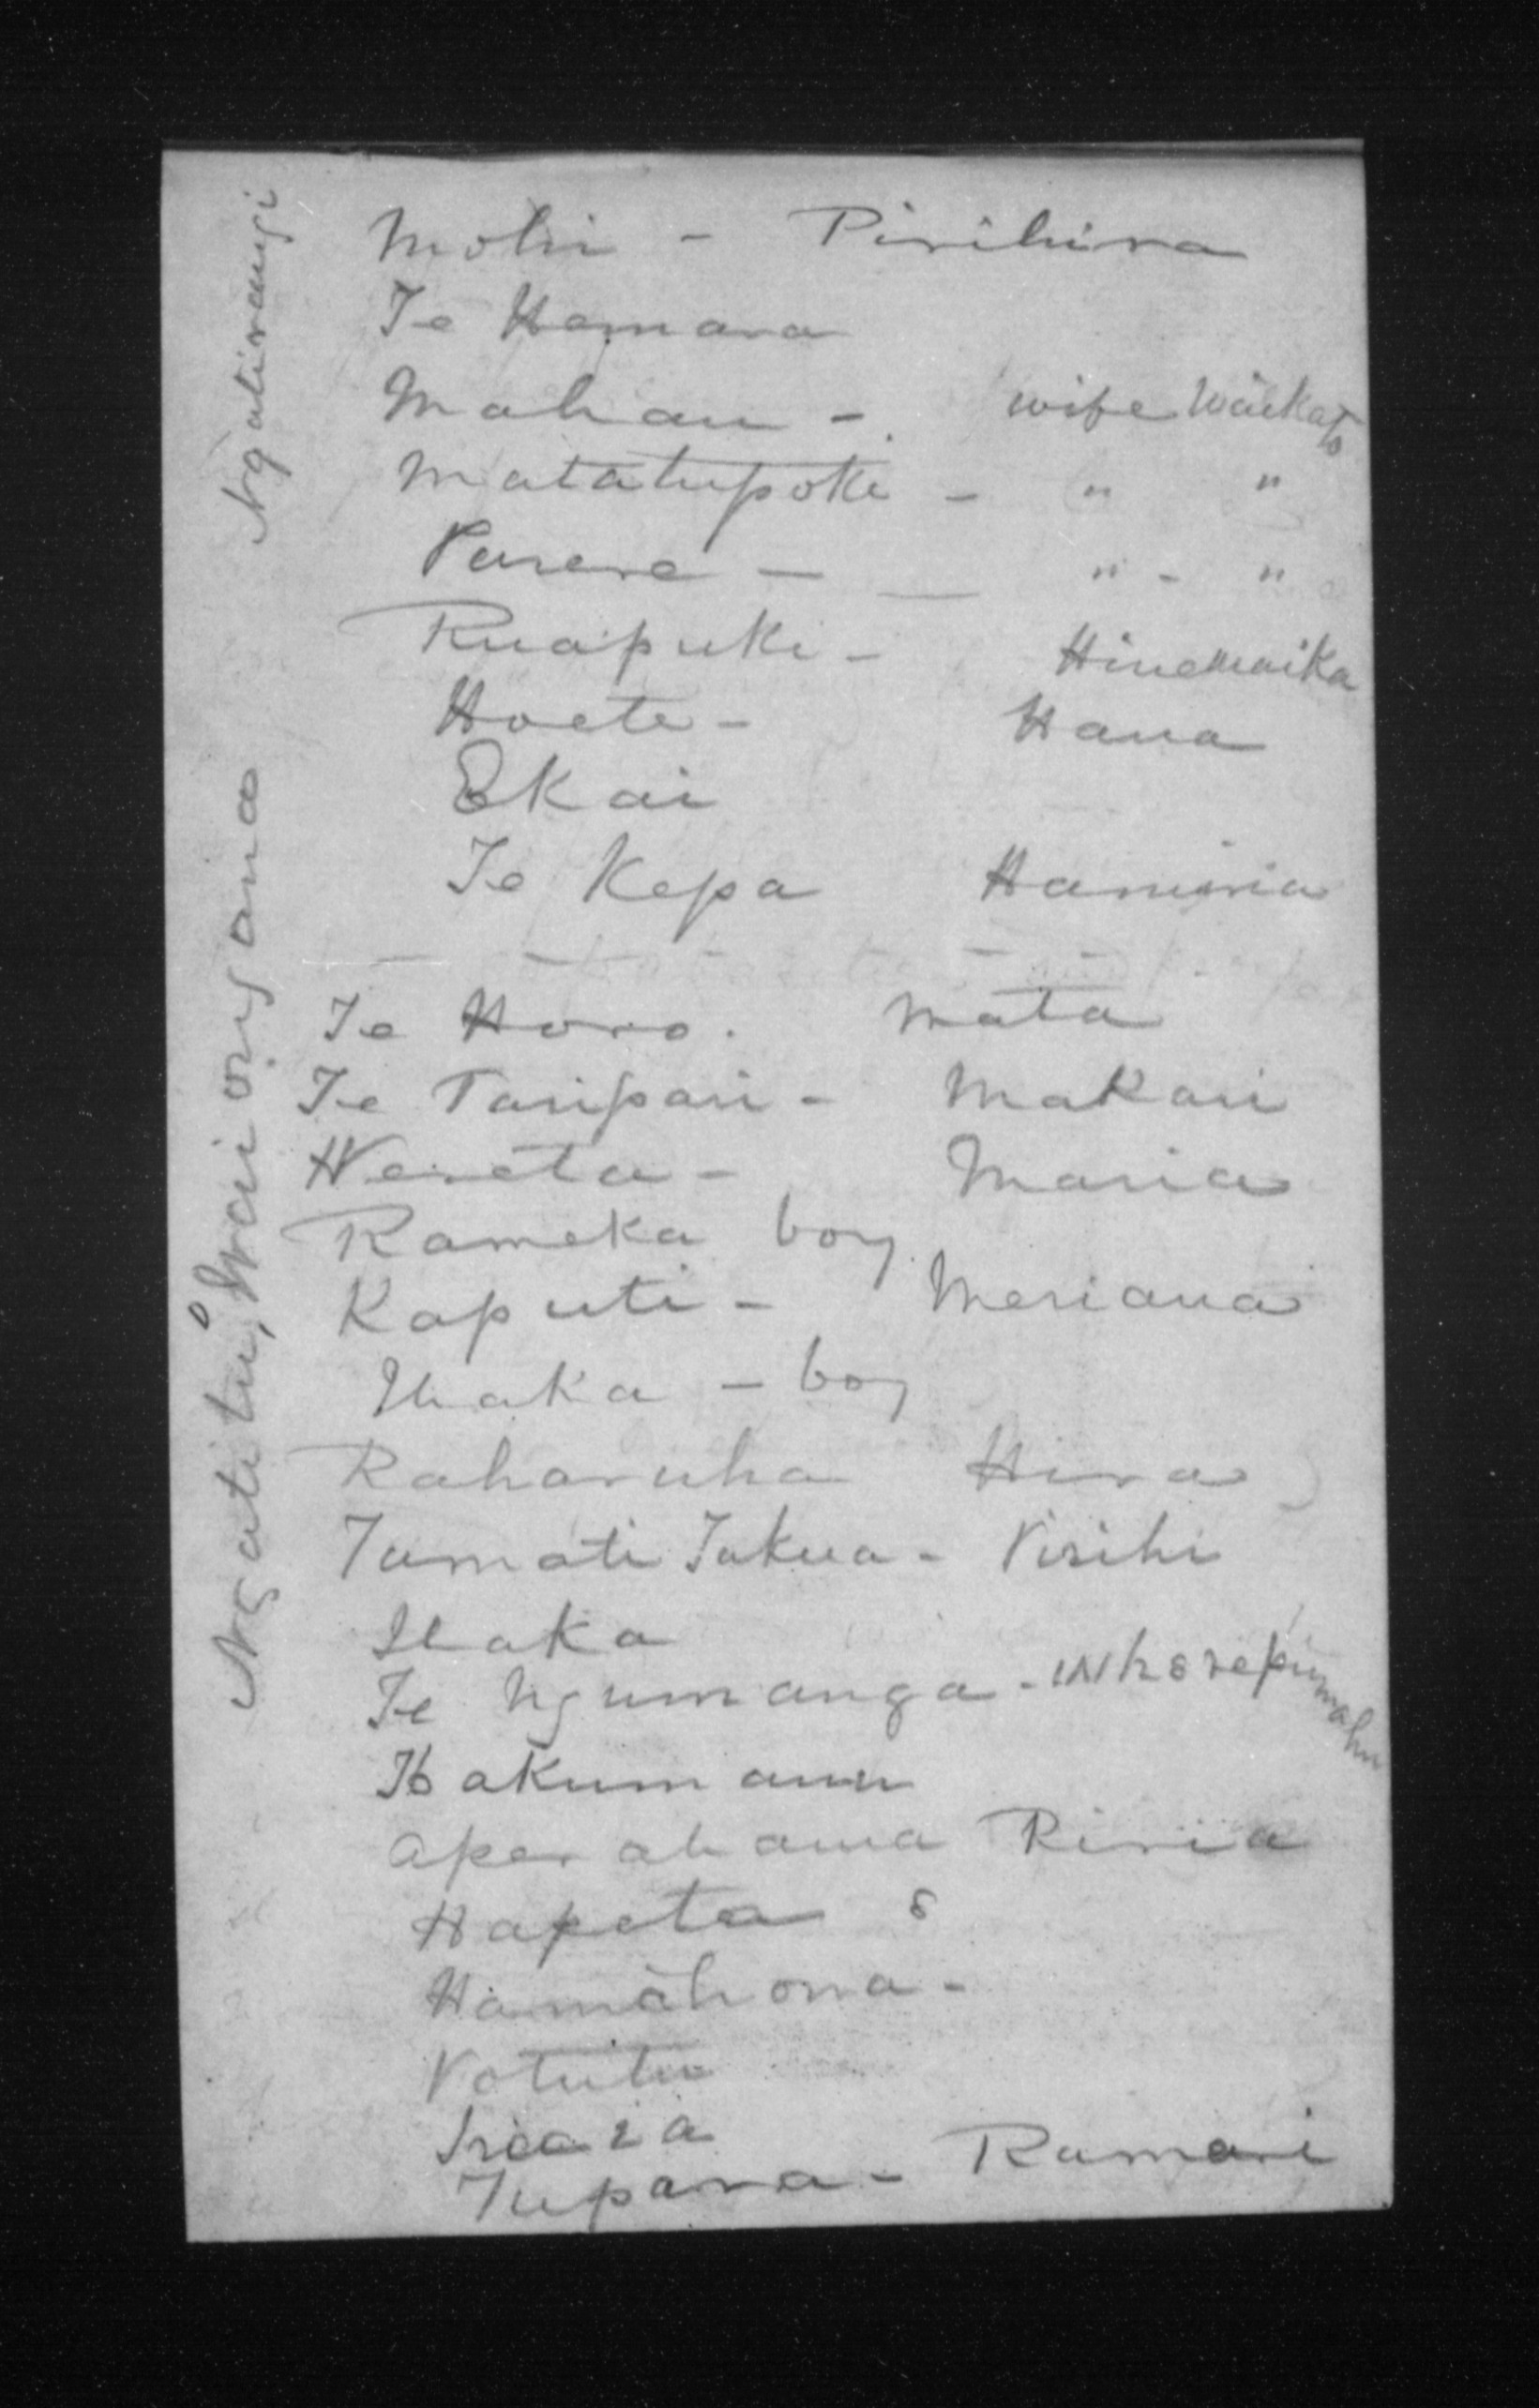 Ngatirangi
Mohi - Pirihira
Te Hamara
Mahau - wife Waikato
Matatupoki - " "
Parera - " - "
Ruapuke - Hinemaika
Hoete - Hana
Ekai
Te Kepa Hamiria
Ngatitu, Waiongana
Te Horo. Mata
Te Taripari - Makari
Wereta - Maria
Rameka boy
Kaputi - Meriana
Ihaka - boy
Raharuha Hira
Tamati Takua - Pirihi
Ihaka
Te Ngumanga - Whorepumahu
Kakumanu
Aperahama Riria
Hapeta
Hamahona -
Potutu
Tupara - Ramari